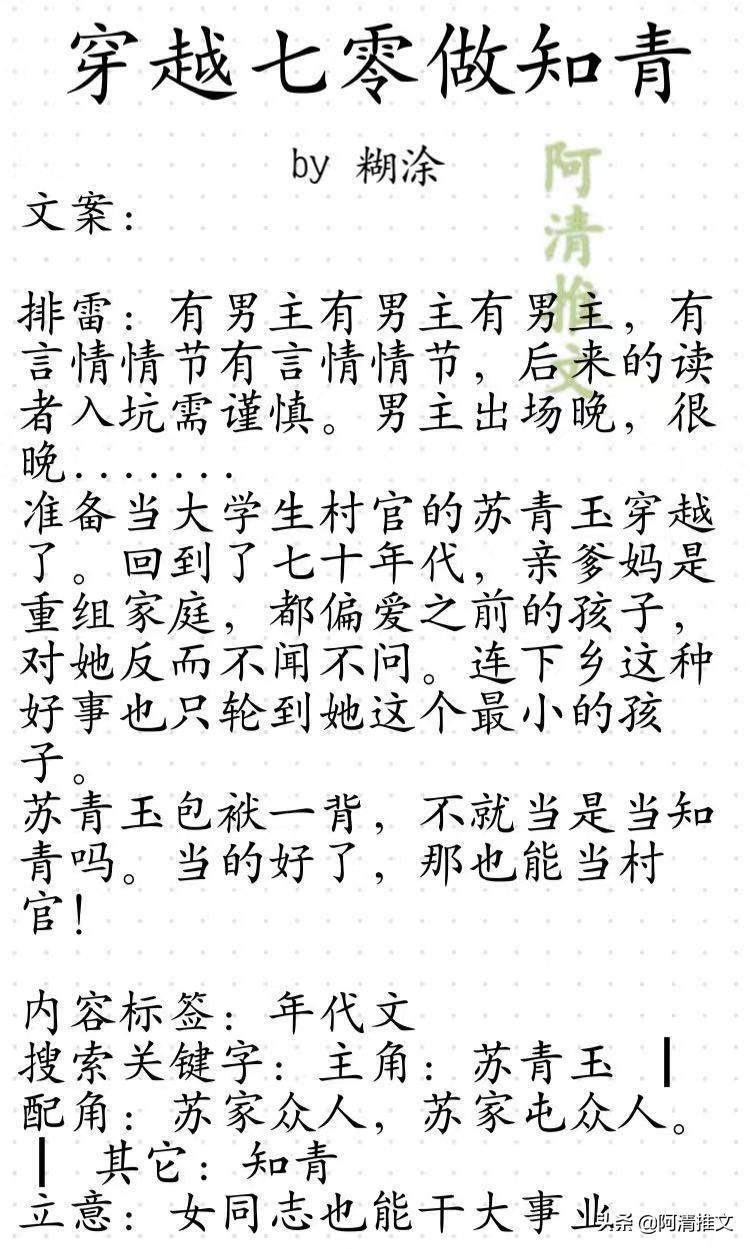 穿越七零做知青
by 糊涂
阿清推文
文案：
排雷：有男主有男主有男主，有
言情情节有言情情节，后来的读
者入坑需谨慎。男主出场晚，很
晚.......
准备当大学生村官的苏青玉穿越
了。回到了七十年代，亲爹妈是
重组家庭，都偏爱之前的孩子，
对她反而不闻不问。连下乡这种
好事也只轮到她这个最小的孩
子。
苏青玉包袱一背，不就当是当知
青吗。当的好了，那也能当村
官！
内容标签：年代文
搜索关键字：主角：苏青玉 ┃
配角：苏家众人，苏家屯众人。
┃ 其它：知青
立意：女同志也能干大事业
头条 @阿清推文